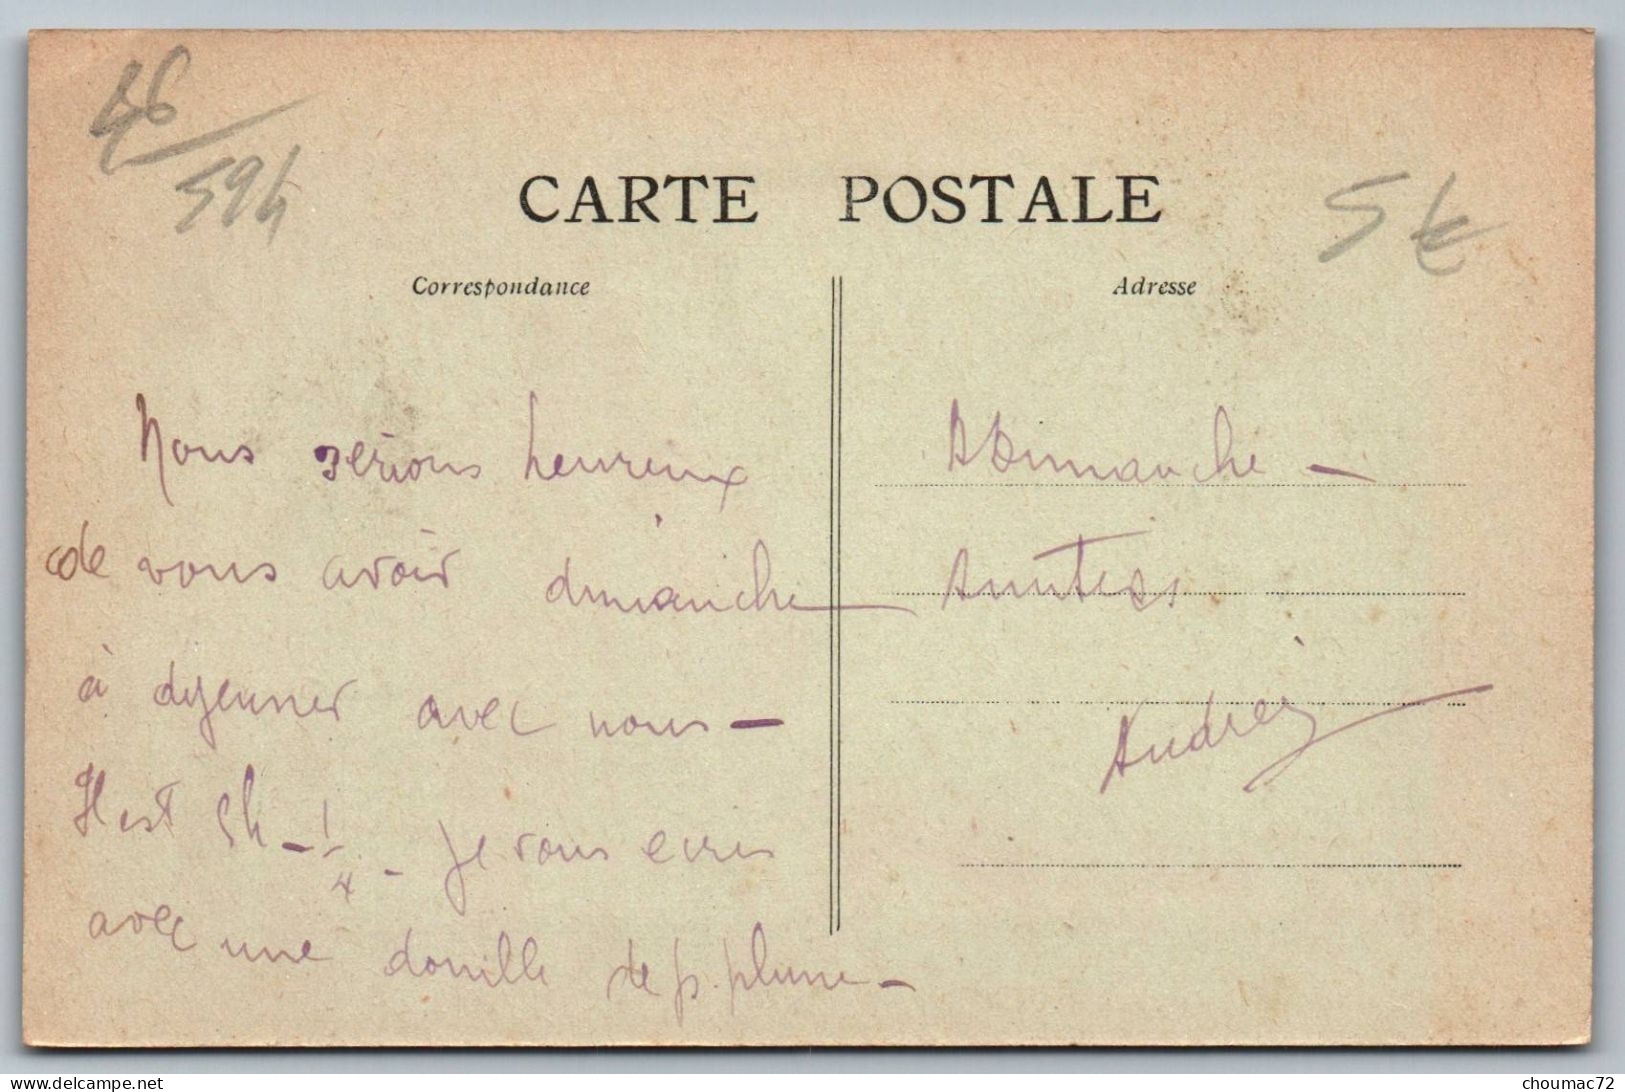 46
594
CARTE POSTALE
5 €
Correspondance
Adresse
Nous serions heureux
de vous avoir dimanche
à dejeuner avec nous —
Il est 5h - 1/4 - Je vous ecris
avec une douille de p. plume -
A Dimanche —
Amities
Andrée
choumac72
delcampe.net